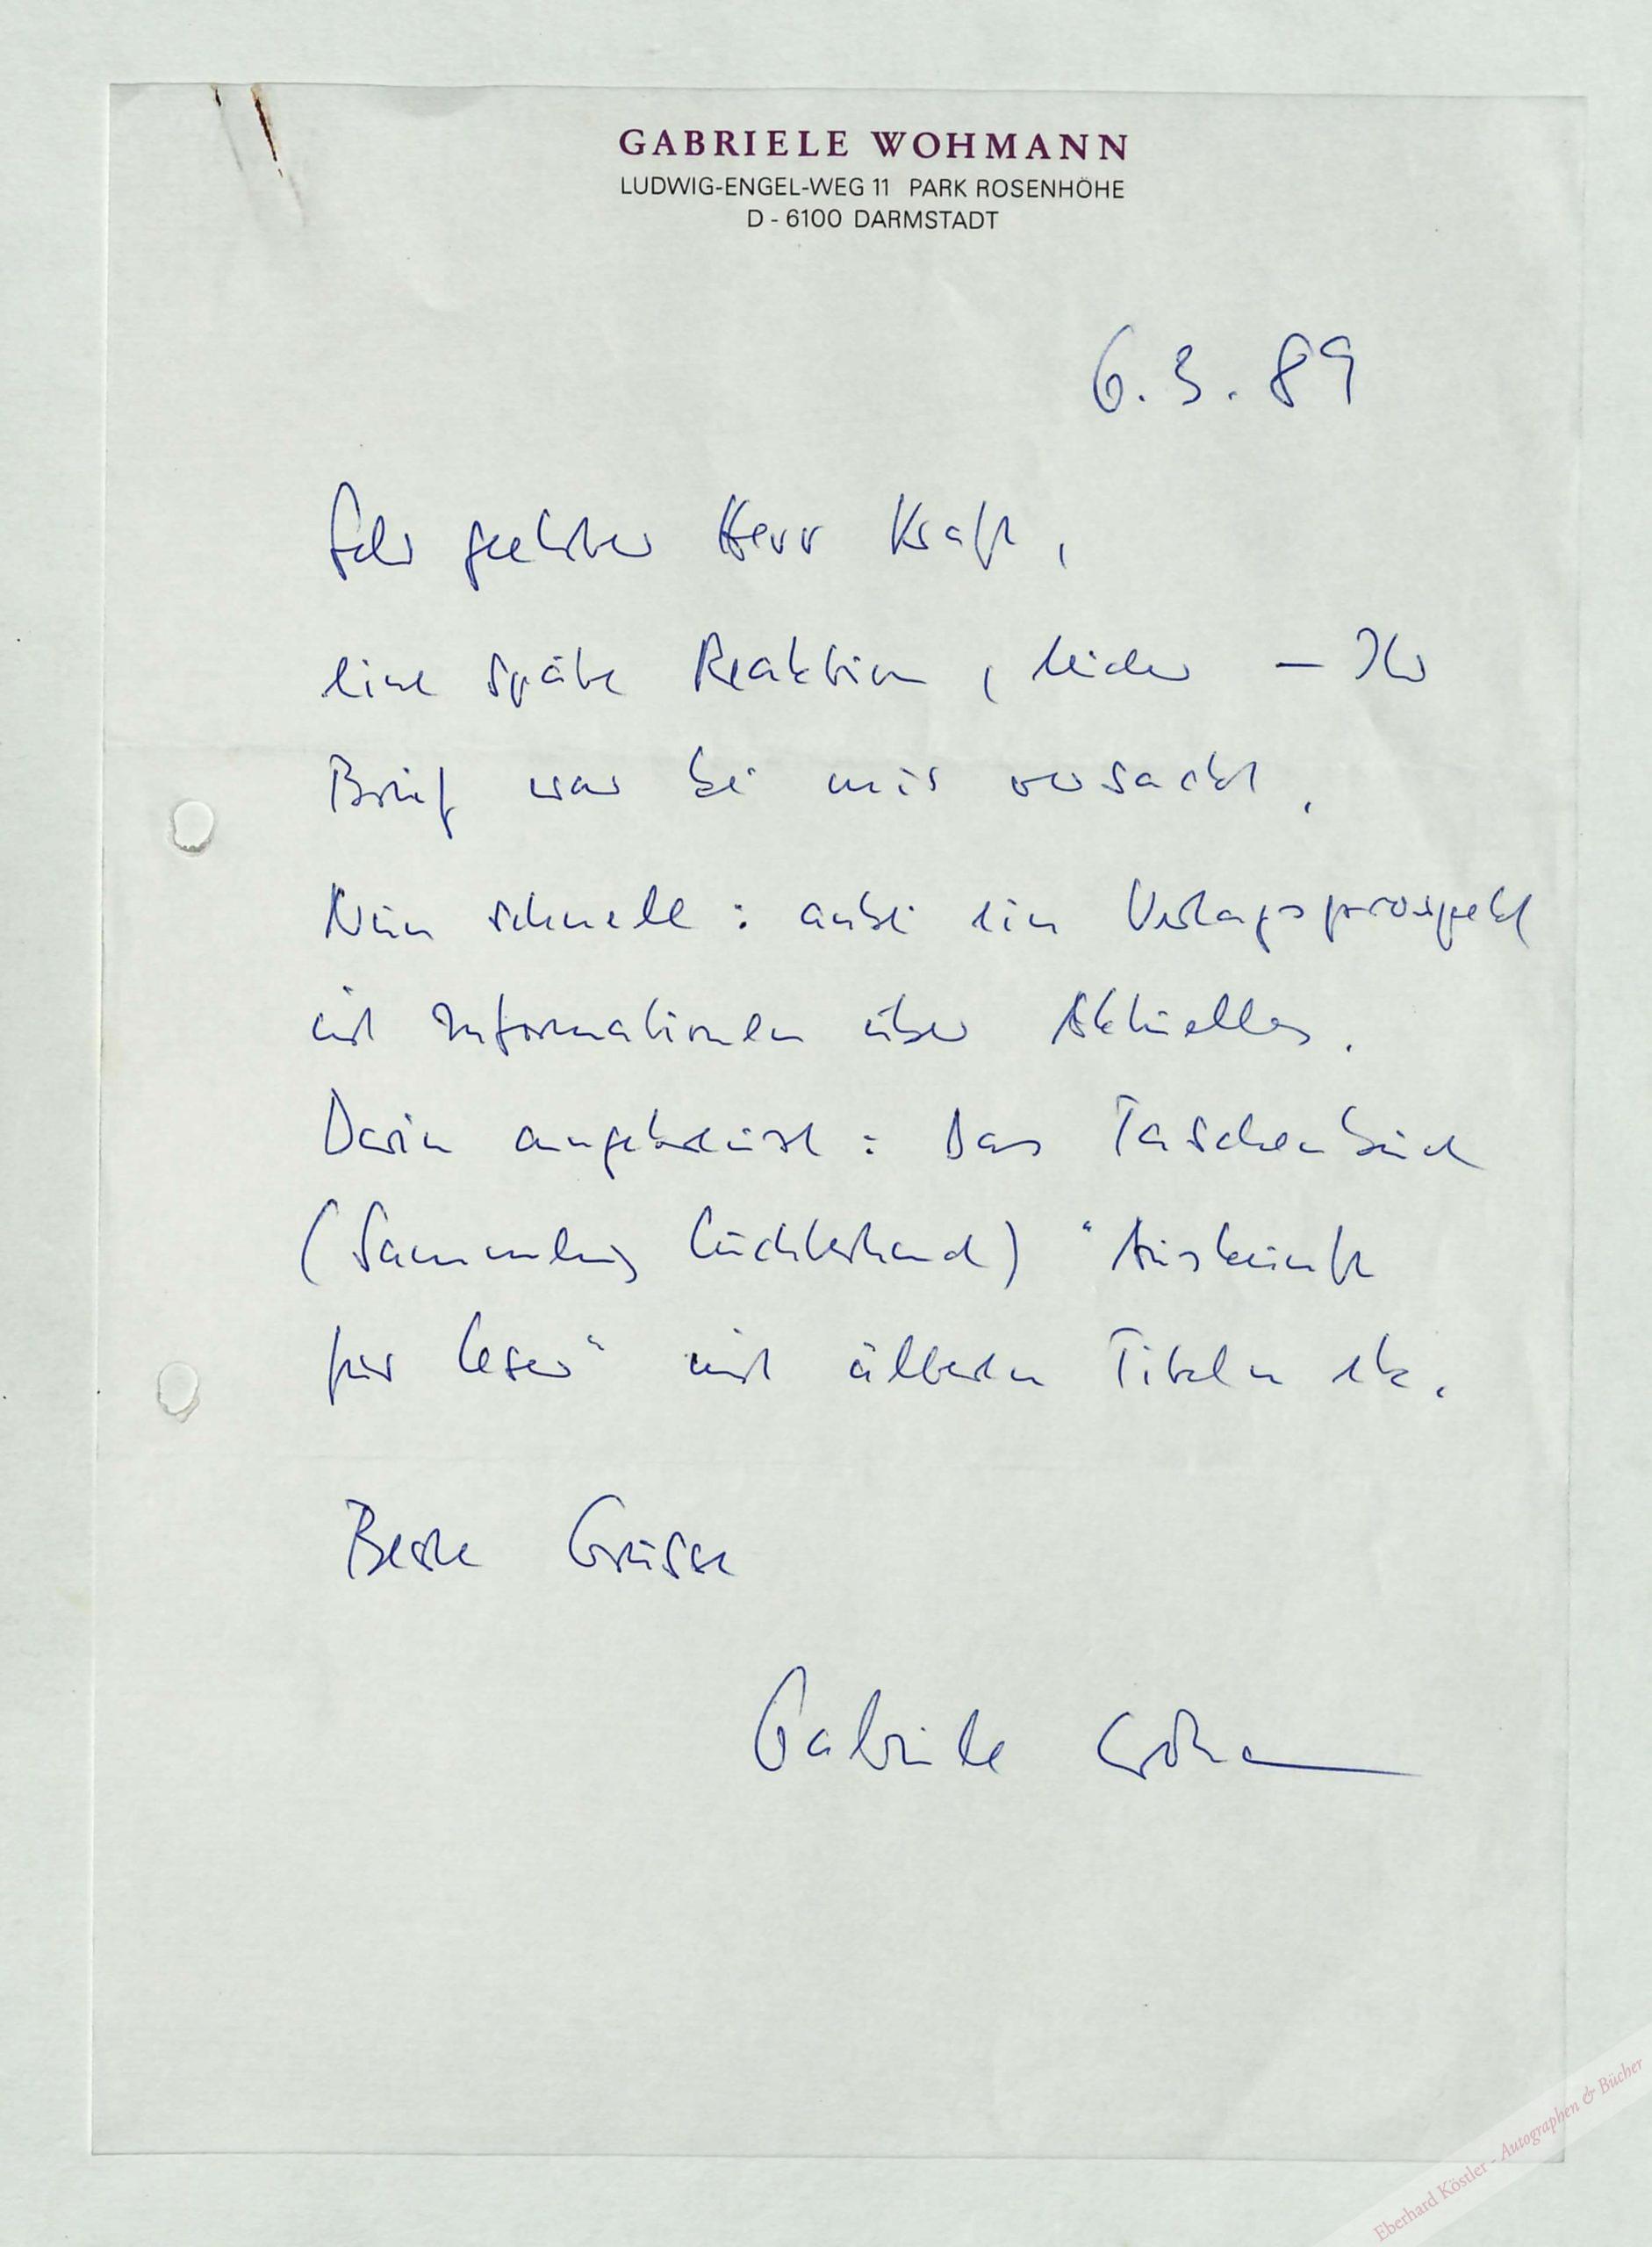 GABRIELE WOHMANN
LUDWIG-ENGEL-WEG 11 PARK ROSENHÖHE
D - 6100 DARMSTADT
6.3.89
Sehr geehrter Herr Kraft,
eine späte Reaktion, leider – Ihr
Brief war bei mir versackt.
Nun schnell: anbei ein Verlagsprospekt
mit Informationen über Aktuelles.
Darin angekreuzt: Das Taschenbuch
(Sammlung Luchterhand) "Auskunft
für Leser" mit älteren Titeln etc.
Beste Grüsse
Gabriele Wohmann
Eberhard Köstler - Autographen & Bücher